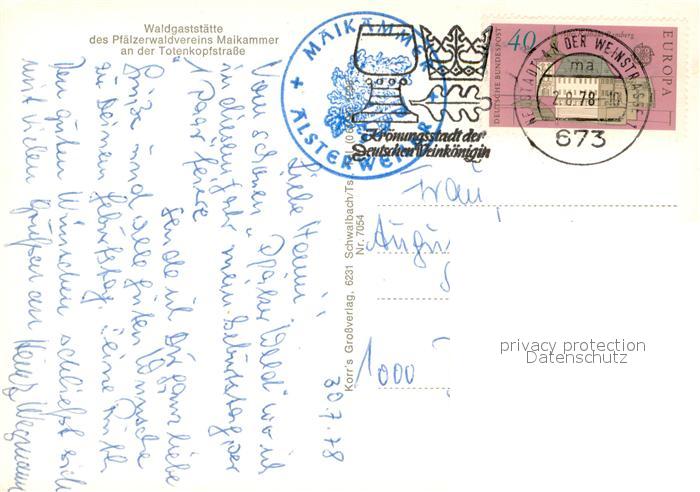 Waldgaststätte
des Pfälzerwaldvereins Maikammer
an der Totenkopfstraße
30.7.78
Liebe Hanni!
Vom schönen „Pfälzer Wald" wo ich
dieses Jahr mein Geburtstag per
"1 Paar feiere
sende ich Dir ganz liebe
Grüße und alle guten Wünsche
zu Deinem Geburtstag.
Den guten Wünschen schließt sich
mit vielen Grüßen an Heinz Wegmann
Korr's Großverlag, 6231 Schwalbach/Ts
Nr. 7054
MAIKAMMER
ALSTERWEILER
Krönungsstadt der
Deutschen Weinkönigin
NEUSTADT AN DER WEINSTRASSE 1
ma
2.8.78-10
673
40
DEUTSCHE BUNDESPOST
EUROPA
CEPT
Bamberg
Frau
Augu
1000
privacy protection
Datenschutz